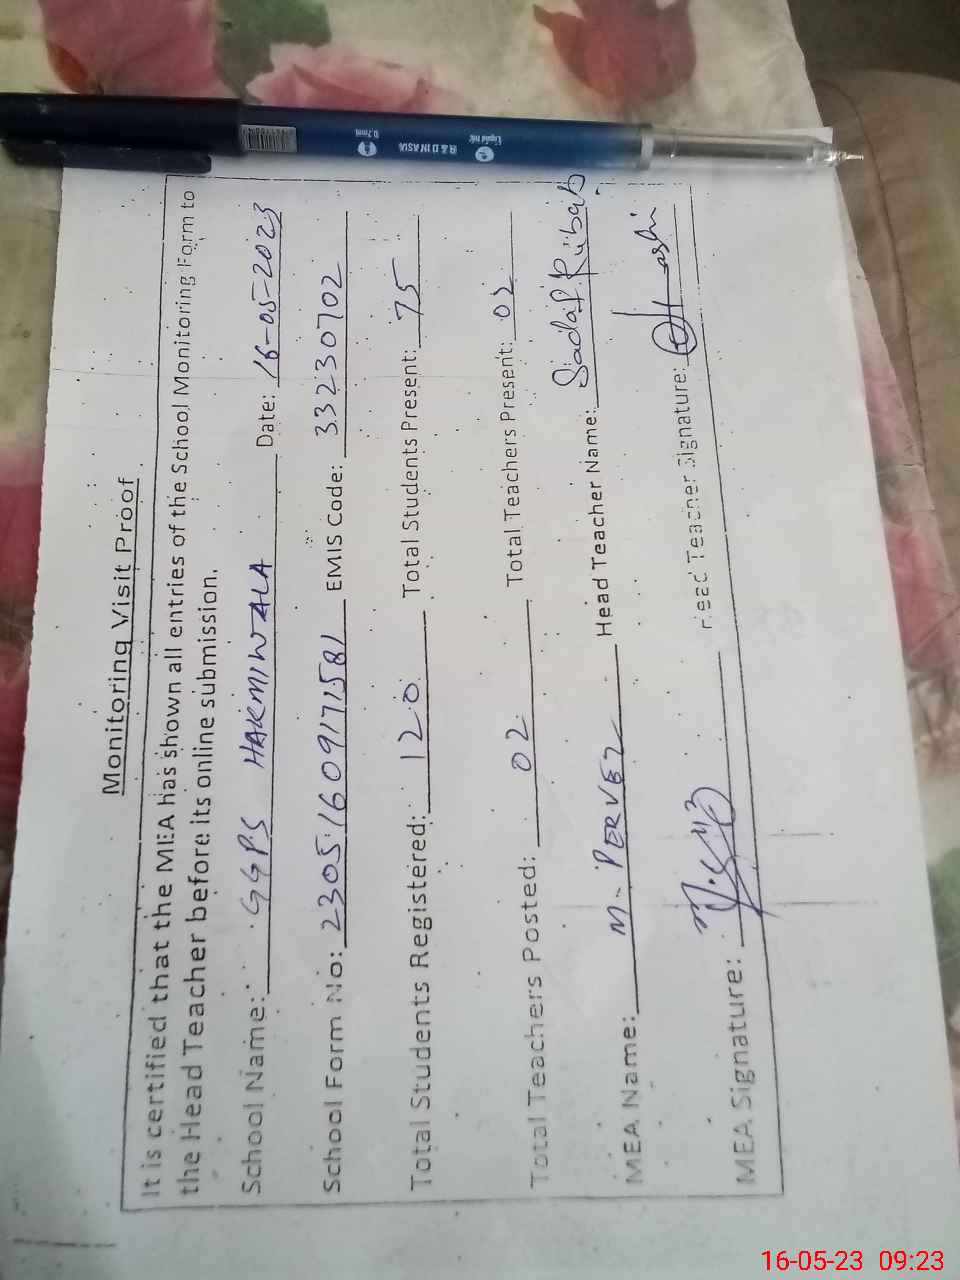 Monitoring Visit Proof
It is certified that the MEA has shown all entries of the School Monitoring Form to
the Head Teacher before its online submission.
School Name: GGPS HAKMIWALA Date: 16-05-2023
School Form No: 23051609171581 EMIS Code: 33230702
Total Students Registered: 120 Total Students Present: 75
Total Teachers Posted: 02 Total Teachers Present: 02
MEA Name: M. PERVEZ Head Teacher Name: Sadaf Rubab
MEA Signature: Head Teacher Signature:
Liquid Ink R & D IN ASIA 0.7mm
16-05-23 09:23